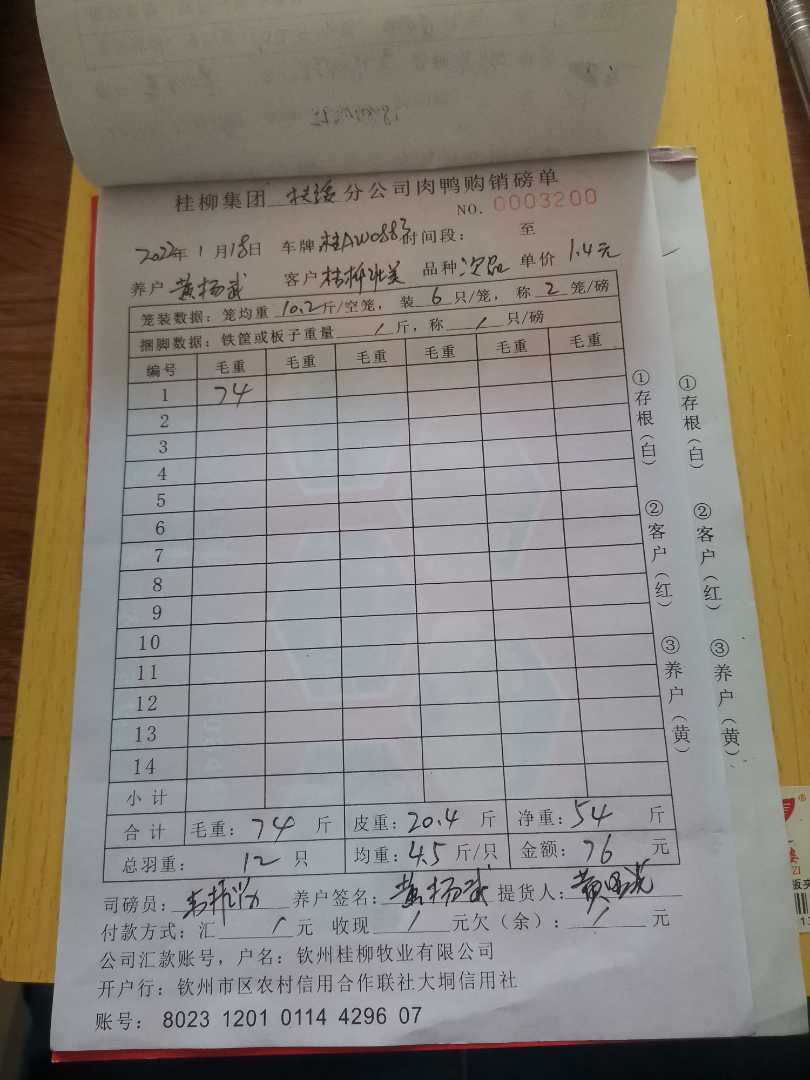 桂柳集团 扶绥 分公司肉鸭购销磅单
NO. 0003200
2022年 1 月 18日 车牌 桂AW0883 时间段： 至
养户 黄杨武 客户 桂柳壮美 品种 次品 单价 1.4元
笼装数据：笼均重 10.2 斤/空笼， 装 6 只/笼， 称 2 笼/磅
捆脚数据：铁筐或板子重量 / 斤，称 / 只/磅
编号 毛重 毛重 毛重 毛重 毛重 毛重
1 74
2
3
4
5
6
7
8
9
10
11
12
13
14
小 计
合 计 毛重： 74 斤 皮重： 20.4 斤 净重： 54 斤
总羽重： 12 只 均重： 4.5 斤/只 金额： 76 元
司磅员： 养户签名： 黄杨武 提货人：
付款方式：汇 / 元 收现 / 元欠（余）： / 元
公司汇款账号，户名：钦州桂柳牧业有限公司
开户行：钦州市区农村信用合作联社大垌信用社
账号： 8023 1201 0114 4296 07
①存根（白） ②客户（红） ③养户（黄）
①存根（白） ②客户（红） ③养户（黄）